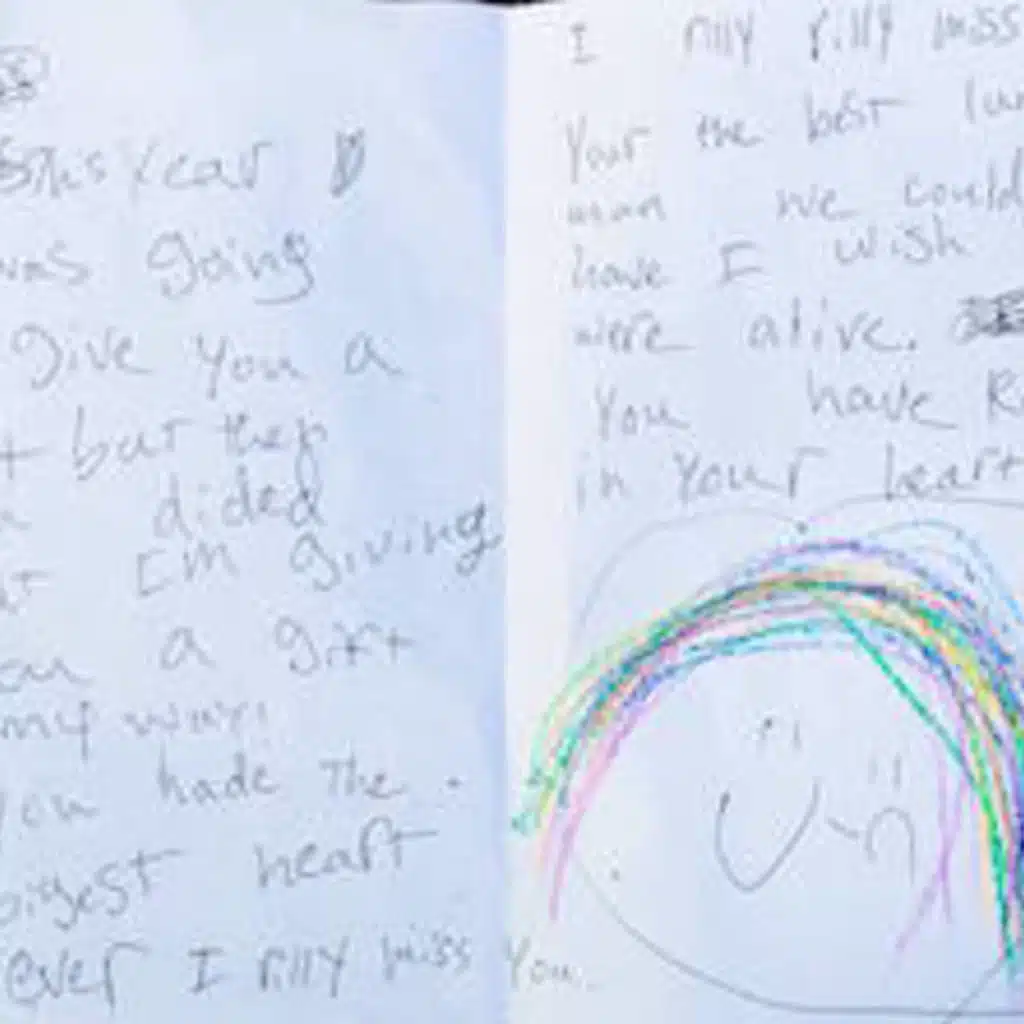 This Year
was going
give you a
but then
dided
I'm giving
a gift
my way!
you hade the
bigest heart
ever I rilly miss you.
I rilly rilly miss
Your the best
man we could
have I wish
were alive.
You have
in your heart